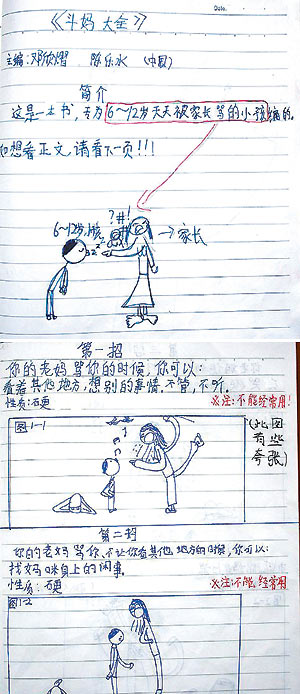 《斗妈大全》
Date.
主编:邓欣熠 陈乐水 (中国)
简介
这是一本书,专为6~12岁天天被家长骂的小孩编的。
如想看正文,请看下一页!!!
?#!
6~12岁小孩
→家长
第一招
你的老妈骂你的时候,你可以:
看着其他地方,想别的事情,不管,不听。
性质:石更
※注:不能经常用!
图1-1
(此图有些夸张)
第二招
你的老妈骂你,不让你看其他地方的时候,你可以:
找妈咪身上的闲事。
性质:石更
※注:不能经常用
图1-2